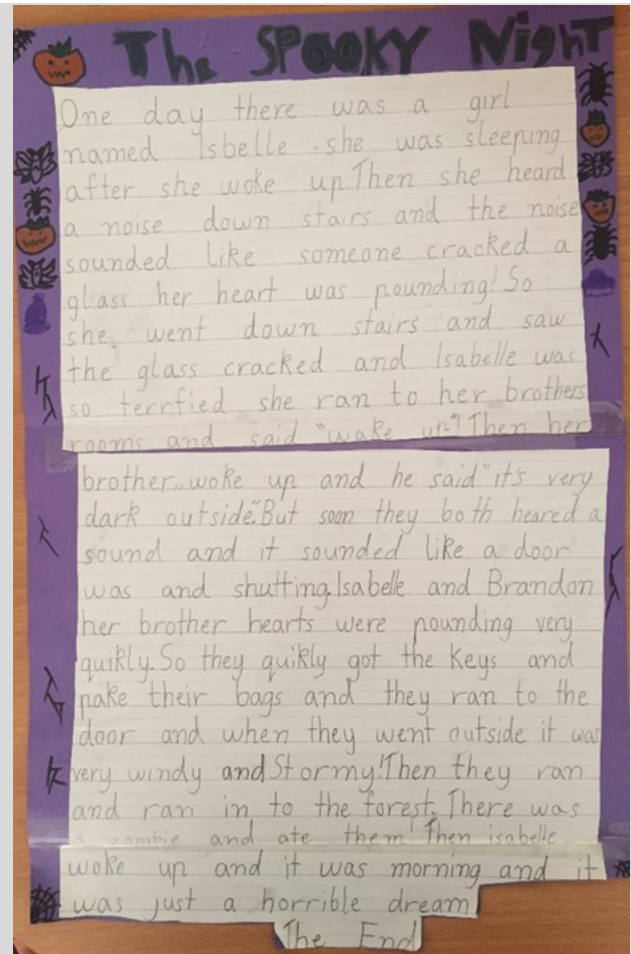 The SPOOKY Night
One day there was a girl
named Isbelle . she was sleeping
after she woke up Then she heard
a noise down stairs and the noise
sounded like someone cracked a
glass her heart was pounding! So
she. went down stairs and saw
the glass cracked and Isabelle was
so terrfied she ran to her brothers
rooms and said "wake up"! Then her
brother,, woke up and he said "it's very
dark outside". But soon they both heared a
sound and it sounded like a door
was and shutting. Isabelle and Brandon
her brother hearts were pounding very
quikly. So they quikly got the Keys and
pake their bags and they ran to the
door and when they went outside it was
very windy and Stormy! Then they ran
and ran in to the forest. There was
a zombie and ate them! Then isabelle
woke up and it was morning and it
was just a horrible dream
The End